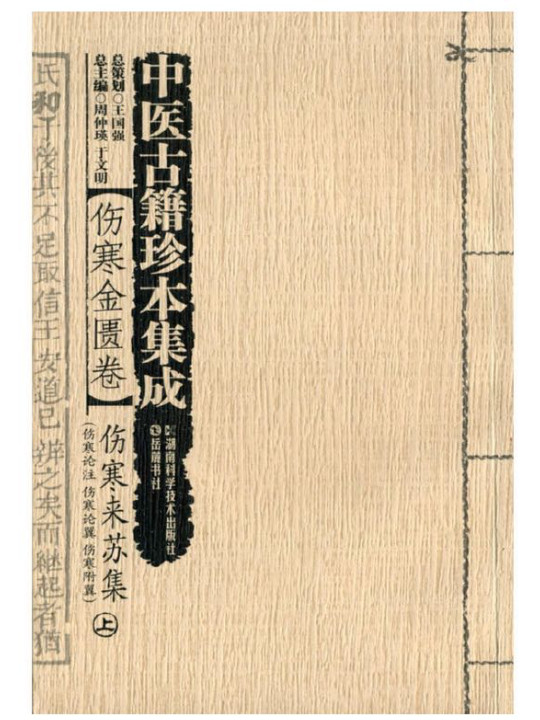 中医古籍珍本集成
湖南科学技术出版社
岳麓书社
总策划○王国强
总主编○周仲瑛 于文明
【伤寒金匮卷】
伤寒来苏集 上
(伤寒论注 伤寒论翼 伤寒附翼)
氏和于後其不足取信王安道已辨之矣而継起者犹